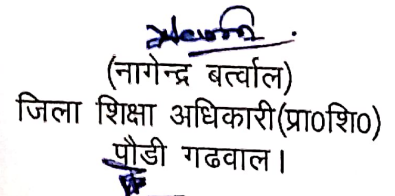 (नागेन्द्र बर्त्वाल)
जिला शिक्षा अधिकारी(प्रा0शि0)
पौडी गढवाल।